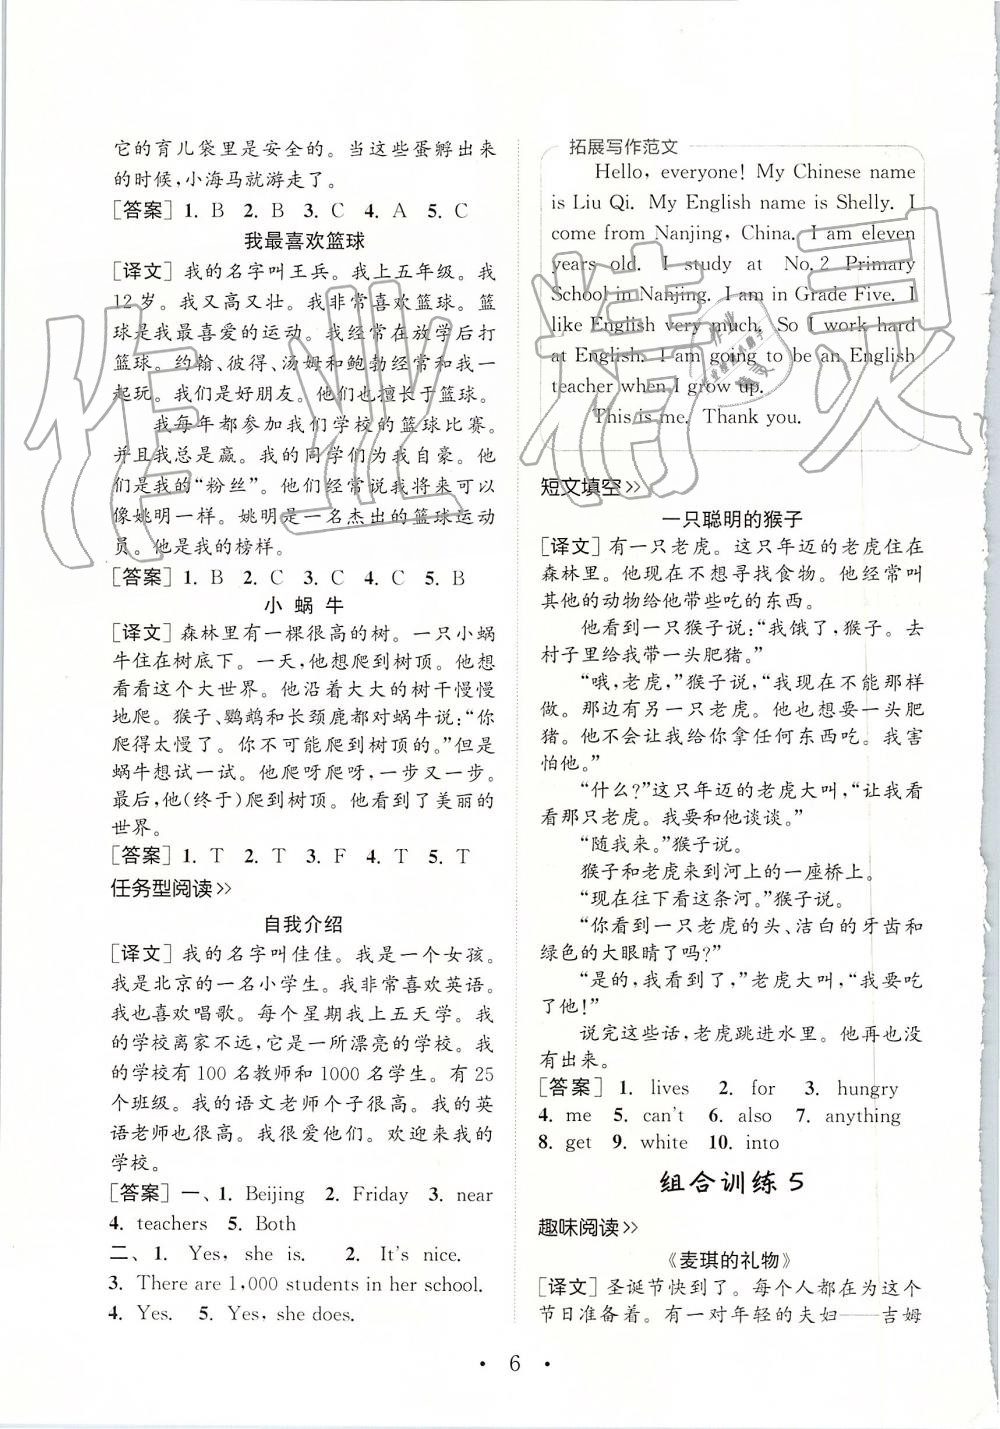 它的育儿袋里是安全的。当这些蛋孵出来
的时候,小海马就游走了。
[答案] 1. B 2. B 3. C 4. A 5. C
我最喜欢篮球
[译文] 我的名字叫王兵。我上五年级。我
12岁。我又高又壮。我非常喜欢篮球。篮
球是我最喜爱的运动。我经常在放学后打
篮球。约翰、彼得、汤姆和鲍勃经常和我一
起玩。我们是好朋友。他们也擅长于篮球。
我每年都参加我们学校的篮球比赛。
并且我总是赢。我的同学们为我自豪。他
们是我的“粉丝”。他们经常说我将来可以
像姚明一样。姚明是一名杰出的篮球运动
员。他是我的榜样。
[答案] 1. B 2. C 3. C 4. C 5. B
小 蜗 牛
[译文] 森林里有一棵很高的树。一只小蜗
牛住在树底下。一天,他想爬到树顶。他想
看看这个大世界。他沿着大大的树干慢慢
地爬。猴子、鹦鹉和长颈鹿都对蜗牛说:“你
爬得太慢了。你不可能爬到树顶的。”但是
蜗牛想试一试。他爬呀爬呀,一步又一步。
最后,他(终于)爬到树顶。他看到了美丽的
世界。
[答案] 1. T 2. T 3. F 4. T 5. T
任务型阅读>>
自我介绍
[译文] 我的名字叫佳佳。我是一个女孩。
我是北京的一名小学生。我非常喜欢英语。
我也喜欢唱歌。每个星期我上五天学。我
的学校离家不远,它是一所漂亮的学校。我
的学校有100名教师和1000名学生。有25
个班级。我的语文老师个子很高。我的英
语老师也很高。我很爱他们。欢迎来我的
学校。
[答案] 一、1. Beijing 2. Friday 3. near
4. teachers 5. Both
二、1. Yes, she is. 2. It's nice.
3. There are 1,000 students in her school.
4. Yes. 5. Yes, she does.
拓展写作范文
Hello, everyone! My Chinese name
is Liu Qi. My English name is Shelly. I
come from Nanjing, China. I am eleven
years old. I study at No. 2 Primary
School in Nanjing. I am in Grade Five. I
like English very much. So I work hard
at English. I am going to be an English
teacher when I grow up.
This is me. Thank you.
短文填空>>
一只聪明的猴子
[译文] 有一只老虎。这只年迈的老虎住在
森林里。他现在不想寻找食物。他经常叫
其他的动物给他带些吃的东西。
他看到一只猴子说:“我饿了,猴子。去
村子里给我带一头肥猪。”
“哦,老虎,”猴子说,“我现在不能那样
做。那边有另一只老虎。他也想要一头肥
猪。他不会让我给你拿任何东西吃。我害
怕他。”
“什么?”这只年迈的老虎大叫,“让我看
看那只老虎。我要和他谈谈。”
“随我来。”猴子说。
猴子和老虎来到河上的一座桥上。
“现在往下看这条河。”猴子说。
“你看到一只老虎的头、洁白的牙齿和
绿色的大眼睛了吗?”
“是的,我看到了,”老虎大叫,“我要吃
了他!”
说完这些话,老虎跳进水里。他再也没
有出来。
[答案] 1. lives 2. for 3. hungry
4. me 5. can't 6. also 7. anything
8. get 9. white 10. into
组合训练 5
趣味阅读>>
《麦琪的礼物》
[译文] 圣诞节快到了。每个人都在为这个
节日准备着。有一对年轻的夫妇——吉姆
· 6 ·
作业精灵